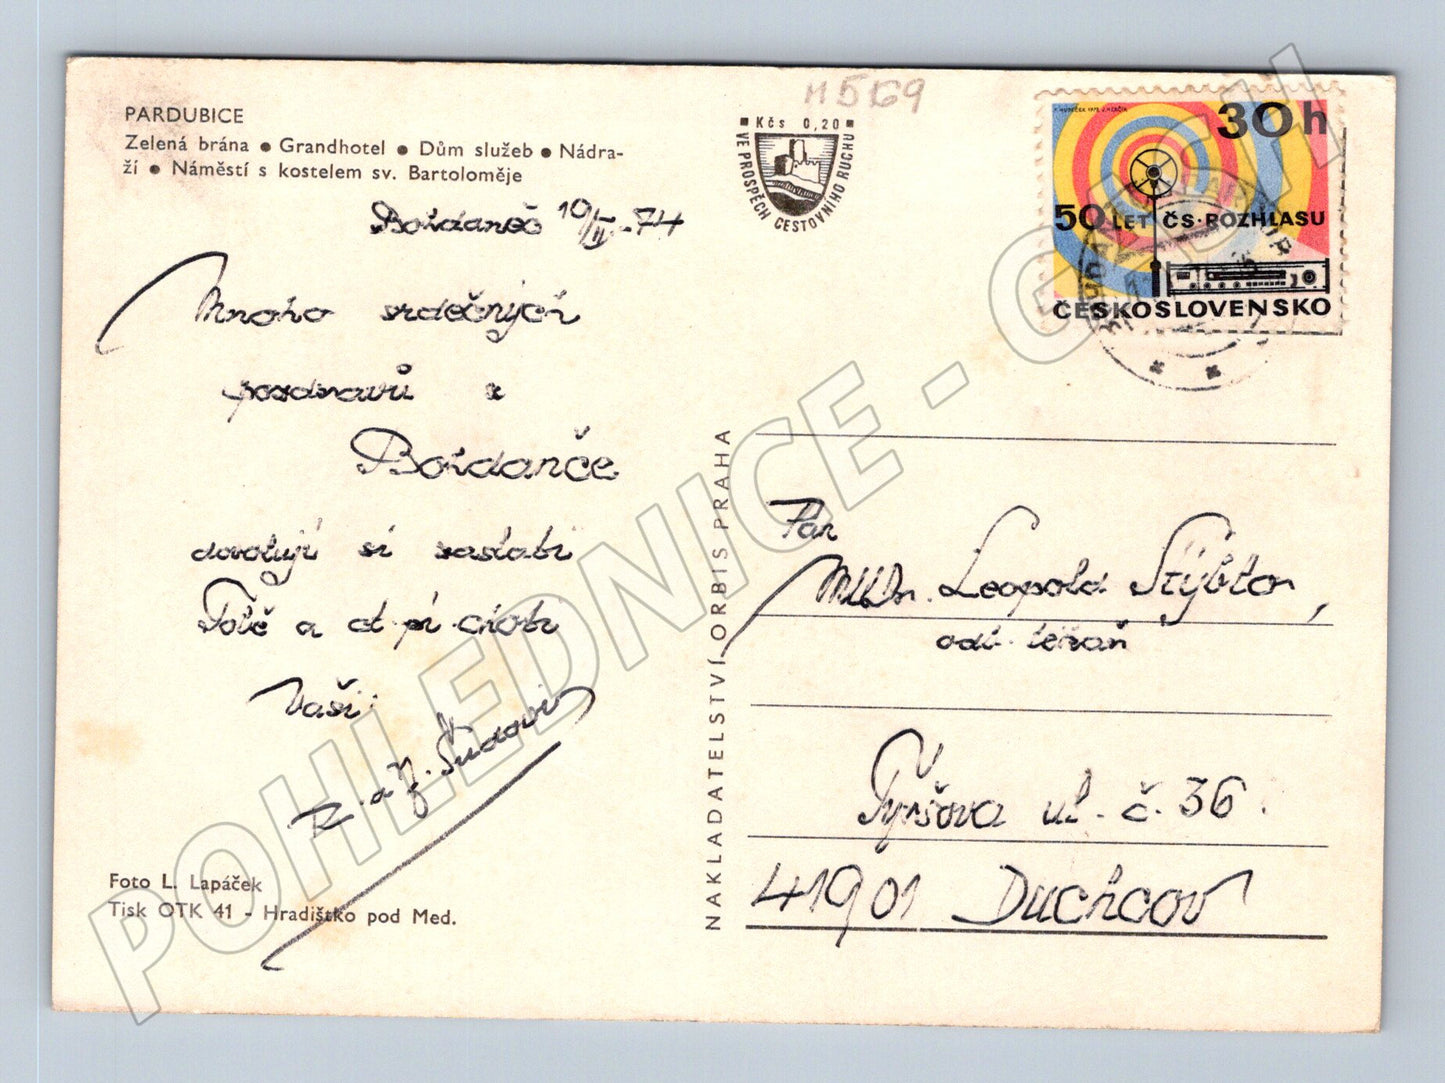 PARDUBICE
Zelená brána ● Grandhotel ● Dům služeb ● Nádra-
ží ● Náměstí s kostelem sv. Bartoloměje
H 5169
Kčs 0,20
VE PROSPĚCH CESTOVNÍHO RUCHU
30h
50 LET ČS. ROZHLASU
ČESKOSLOVENSKO
Mnoho srdečných
pozdravů z
Bohdanče
dovolují si zaslati
Tobě a ct. pí. choti
Vaši
R. a J. Šudovi
Foto L. Lapáček
Tisk OTK 41 - Hradištko pod Med.
NAKLADATELSTVÍ ORBIS PRAHA
Pan
MUDr. Leopold Stýblo,
odb. lékař
Tyršova ul. č. 36.
41901 Duchcov
POHLEDNICE - CZECH